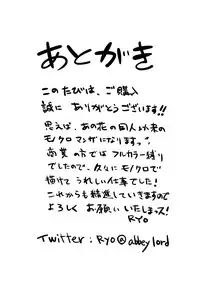 あとがき
このたびは、ご購入
誠にありがとうございます!!
思えば、あの花の同人以来の
モノクロマンガになります。
商業の方ではフルカラー縛り
でしたので、久々にモノクロで
描けてうれしい仕事でした!
これからも精進していきますので
よろしくお願いいたしまっス!
RYO
Twitter:RYO@abbeylord